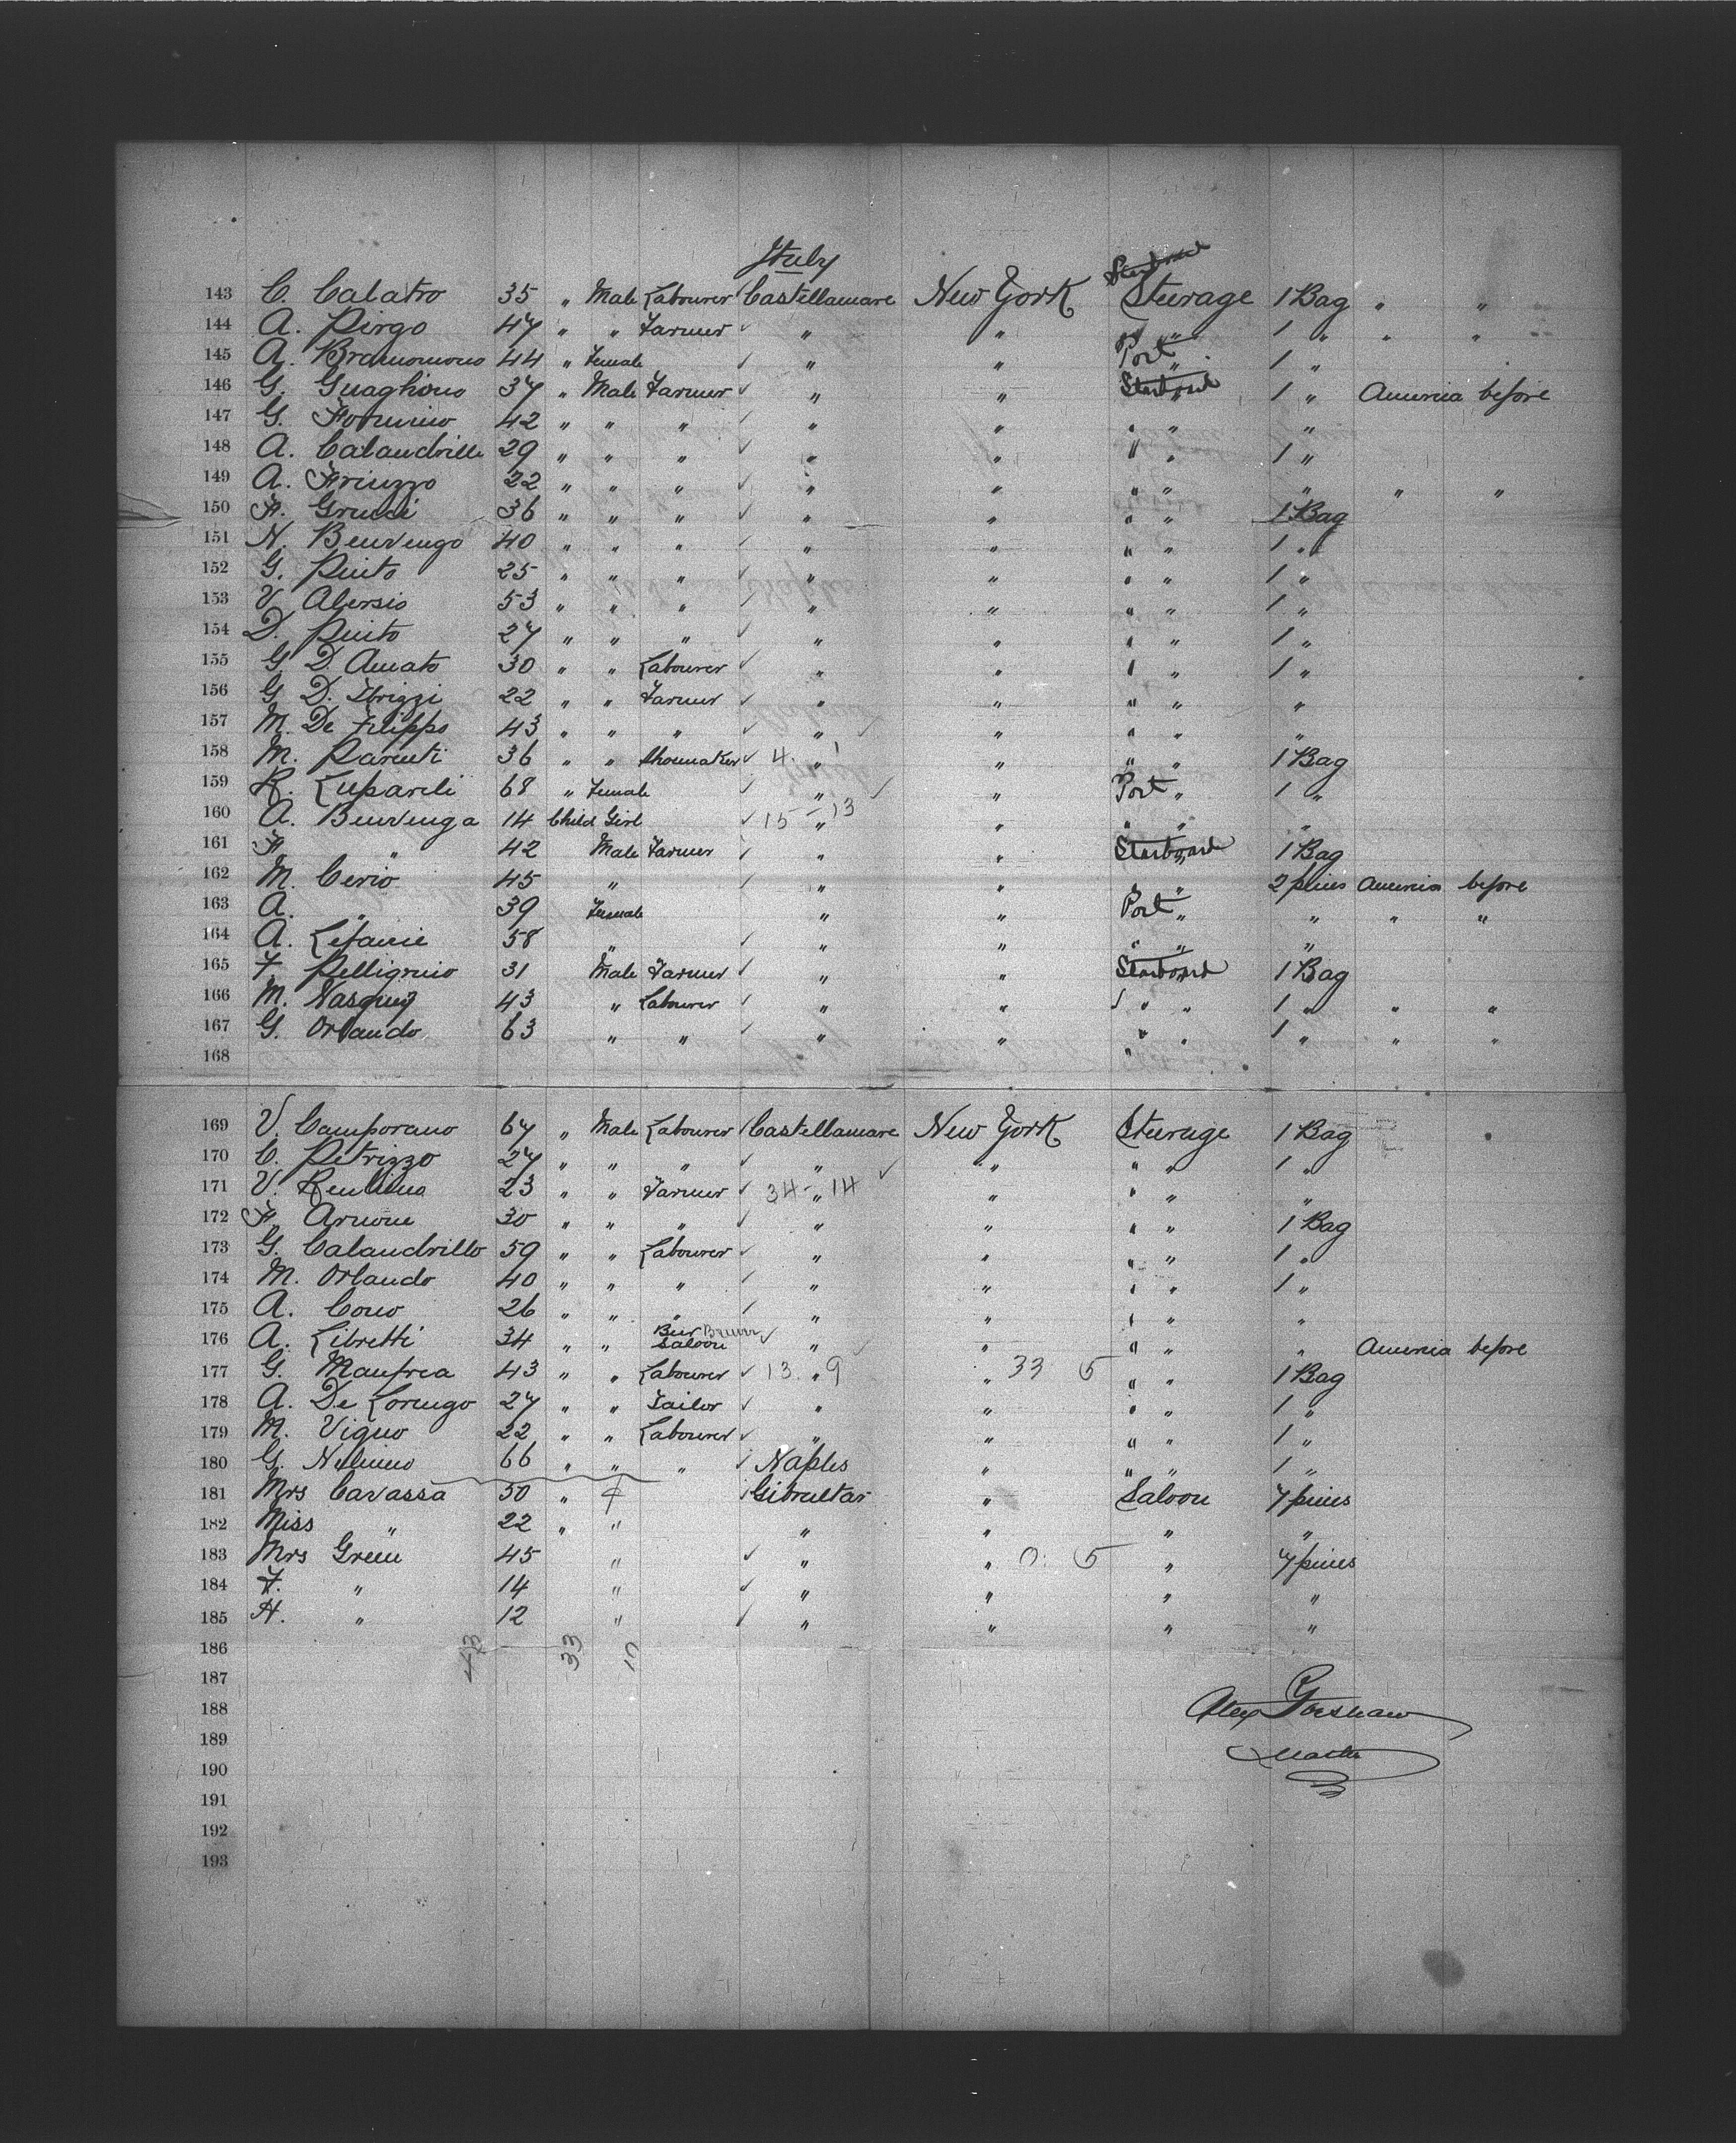 Italy
Starboard
143 C. Calatro 35 " Male Labourer Castellamare New York Steerage 1 Bag " "
144 A. Pirgo 47 " " Farmer " " " 1 " " "
145 A. 44 " Female " " Port " 1 "
146 G. 37 " Male Farmer " " Starboard " 1 " America before
147 G. 42 " " " " " " " "
148 A. Calandrillo 29 " " " " " " " 1 "
149 A. 22 " " " " " " " " " "
150 F. 36 " " " " " " " 1 Bag
151 N. Benvengo 40 " " " " " " " 1 "
152 G. Pinto 25 " " " " " " " 1 "
153 V. Alersio 53 " " " " " " " 1 "
154 D. Pinto 27 " " " " " " " 1 "
155 G D. Amato 30 " " Labourer " " " " 1 "
156 G D. 22 " " Farmer " " " " "
157 M. De Filippo 43 " " " " " " " "
158 M. Parenti 36 " " Shoemaker 4. " " " " 1 Bag
159 R. Lupareli 68 " Female " " Port " 1 "
160 A. Benvenga 14 Child Girl 15 - 13 " " " " "
161 F. " 42 Male Farmer " " Starboard " 1 Bag
162 M. Cerio 45 " " " " " 2 pieces America before
163 A. " 39 Female " " Port " " " "
164 A. 58 " " " " " "
165 F. Pelligrino 31 Male Farmer " " Starboard 1 Bag
166 M. 43 " Labourer " " " " 1 " " "
167 G. Orlando 63 " " " " " " 1 " " "
168 "
169 V. Camporano 67 " Male Labourer Castellamare New York Steerage 1 Bag
170 C. Petrizzo 27 " " " " " " " 1 "
171 V. 23 " " Farmer 34 - " 14 " " " "
172 F. Arnone 30 " " " " " " " 1 Bag
173 G. Calandrillo 59 " " Labourer " " " " 1 "
174 M. Orlando 40 " " " " " " " 1 "
175 A. Cono 26 " " " " " " " "
176 A. Libretti 34 " " Beer Saloon " " " " " America before
177 G. Manfrea 43 " " Labourer 13. " 9 " 33 5 " " 1 Bag
178 A. De Lorengo 27 " " Tailor " " " " 1 "
179 M. Viguo 22 " " Labourer " " " " 1 "
180 G. 66 " " " Naples " " " 1 "
181 Mrs Cavassa 50 " f Gibraltar " Saloon 7 pieces
182 Miss " 22 " " " " " "
183 Mrs Green 45 " " " 0: 5 " 7 pieces
184 F. " 14 " " " " "
185 H. " 12 " " " " "
186 43 33 10
187
188 Alex
189
190 Master
191
192
193